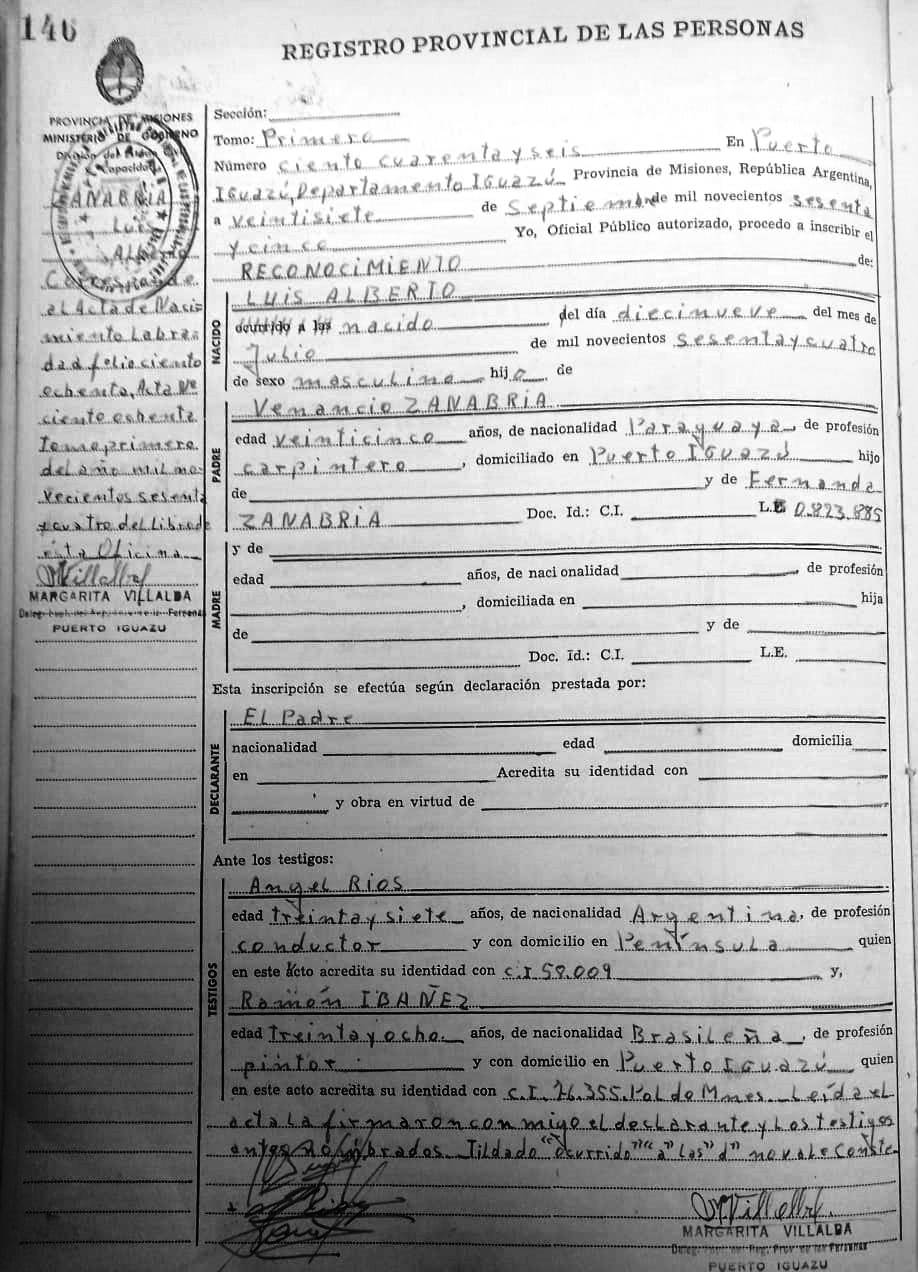 146
REGISTRO PROVINCIAL DE LAS PERSONAS
PROVINCIA DE MISIONES
MINISTERIO DE GOBIERNO
Capacidad
ZANABRIA
Luis
Alberto
Corresponde
al Acta de Naci-
miento Labra-
da al folio ciento
ochenta, Acta Nº
ciento ochenta
tomo primero
del año mil no-
vecientos sesenta
y cuatro del Libro de
ésta Oficina
MARGARITA VILLALBA
PUERTO IGUAZU
Sección:
Tomo: Primero
Número ciento cuarenta y seis En Puerto
Iguazú, Departamento Iguazú Provincia de Misiones, República Argentina,
a veintisiete de Septiembre de mil novecientos sesenta
y cinco Yo, Oficial Público autorizado, procedo a inscribir el
RECONOCIMIENTO de:
NACIDO
LUIS ALBERTO
ocurrido a las nacido del día diecinueve del mes de
Julio de mil novecientos sesenta y cuatro
de sexo masculino hijo de
PADRE
Venancio ZANABRIA
edad veinticinco años, de nacionalidad Paraguaya, de profesión
carpintero, domiciliado en Puerto Iguazú hijo
de y de Fernanda
ZANABRIA Doc. Id.: C.I. L.E. 0.823.885
MADRE
y de
edad años, de nacionalidad , de profesión
, domiciliada en hija
de y de
Doc. Id.: C.I. L.E.
Esta inscripción se efectúa según declaración prestada por:
DECLARANTE
El Padre
nacionalidad edad domicilia
en Acredita su identidad con
y obra en virtud de
Ante los testigos:
TESTIGOS
Angel RIOS
edad treinta y siete años, de nacionalidad Argentina, de profesión
conductor y con domicilio en Península quien
en este acto acredita su identidad con C.I 58.009 y,
Ramón IBAÑEZ
edad treinta y ocho. años, de nacionalidad Brasileña, de profesión
pintor y con domicilio en Puerto Iguazú quien
en este acto acredita su identidad con C.I. 26.355.Pol de Mnes. Leída el
acta la firmaron conmigo el declarante y los testigos
antes nombrados. Tildado "ocurrido" "a" las" d" no vale Conste
MARGARITA VILLALBA
Deleg. Reg. Prov. de las Personas
PUERTO IGUAZU